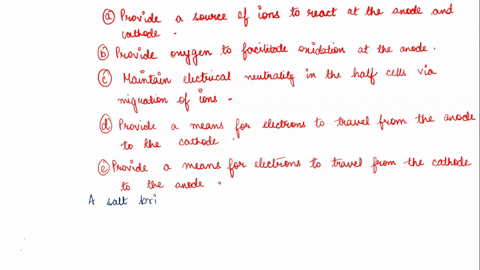 (a) Provide a source of ions to react at the anode and
cathode.
(b) Provide oxygen to facilitate oxidation at the anode.
(c) Maintain electrical neutrality in the half cells via
migration of ions.
(d) Provide a means for electrons to travel from the anode
to the cathode.
(e) Provide a means for electrons to travel from the cathode
to the anode.
A salt bri